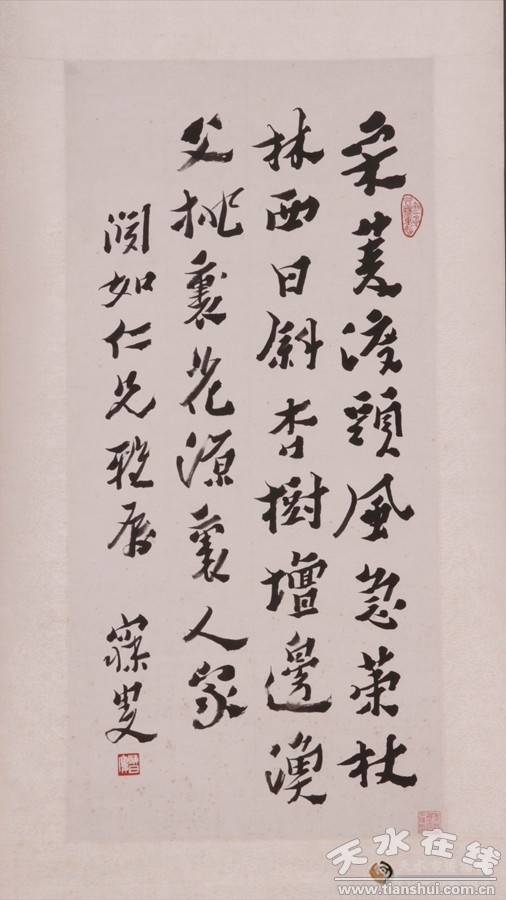 采菱渡頭風急策杖
林西日斜杏樹壇邊漁
父桃裏花源裏人家
閱如仁兄雅屬 寐叟
天水在线
www.tianshui.com.cn